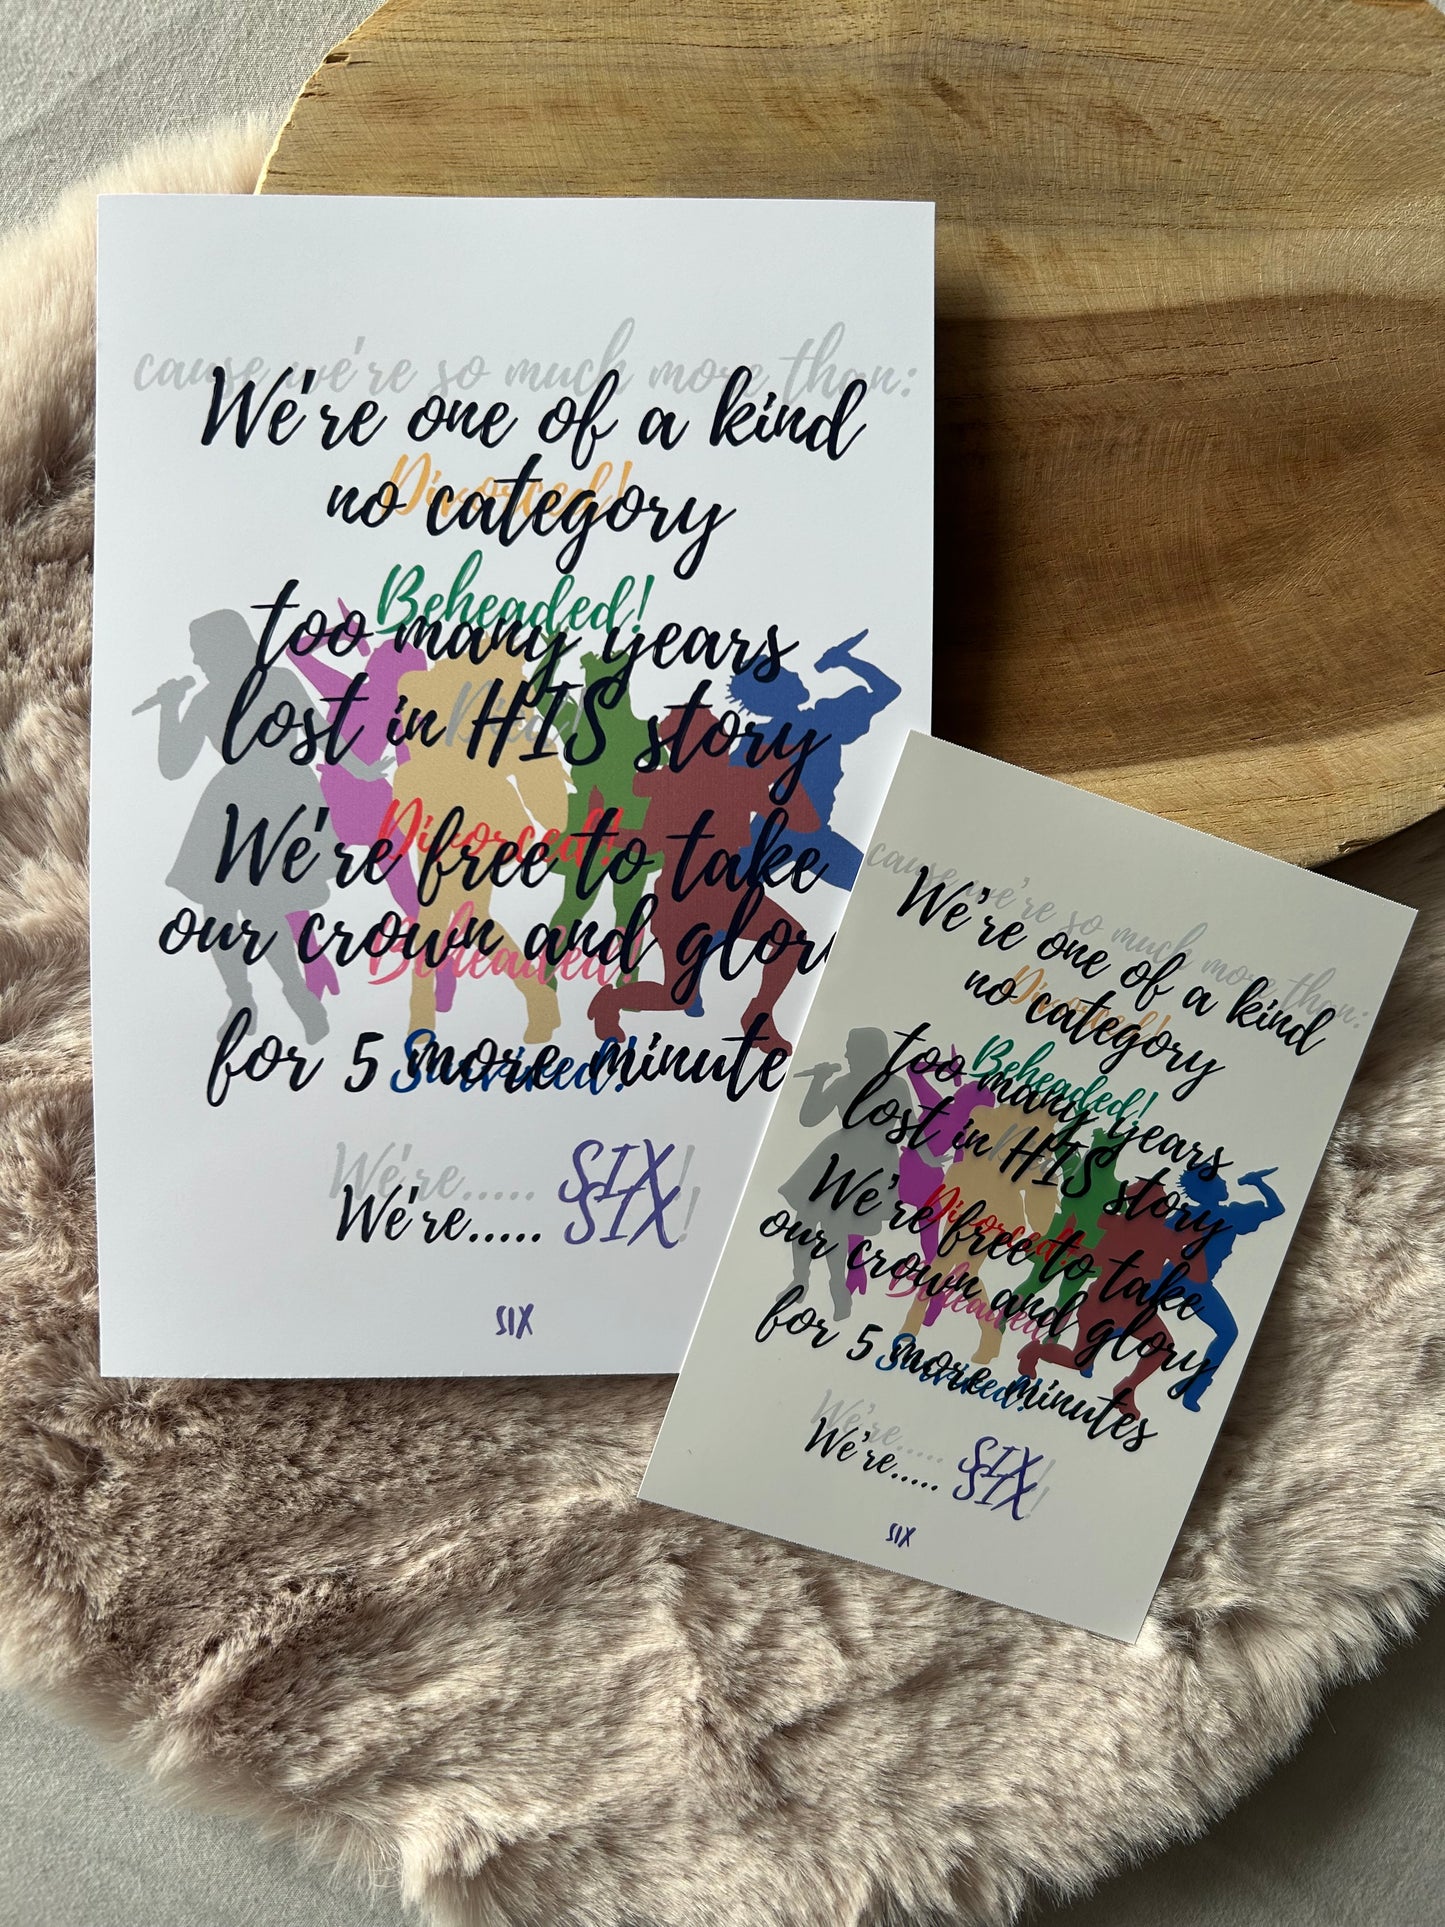 cause we're so much more than:
We're one of a kind
Divorced!
no category
Beheaded!
too many years
lost in HIS story
Died!
Divorced!
We're free to take
our crown and glor
Beheaded!
for 5 more minute
Survived!
We're..... SIX!
We're..... SIX!
SIX
cause we're so much more than:
We're one of a kind
Divorced!
no category
Beheaded!
too many years
lost in HIS story
Died!
Divorced!
We're free to take
our crown and glory
Beheaded!
for 5 more minutes
Survived!
We're..... SIX!
We're..... SIX!
SIX